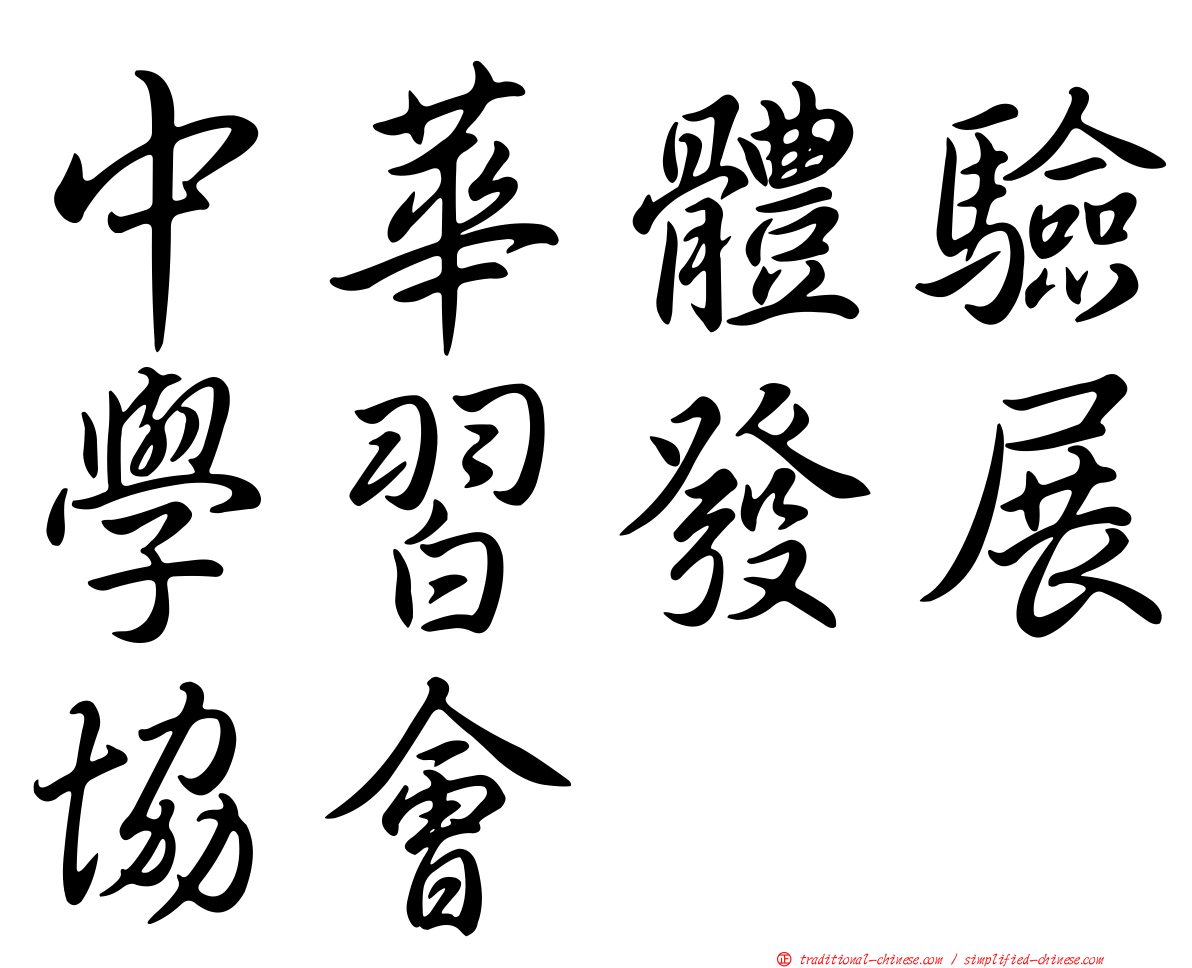 中華體驗
學習發展
協會
正 traditional-chinese.com / simplified-chinese.com